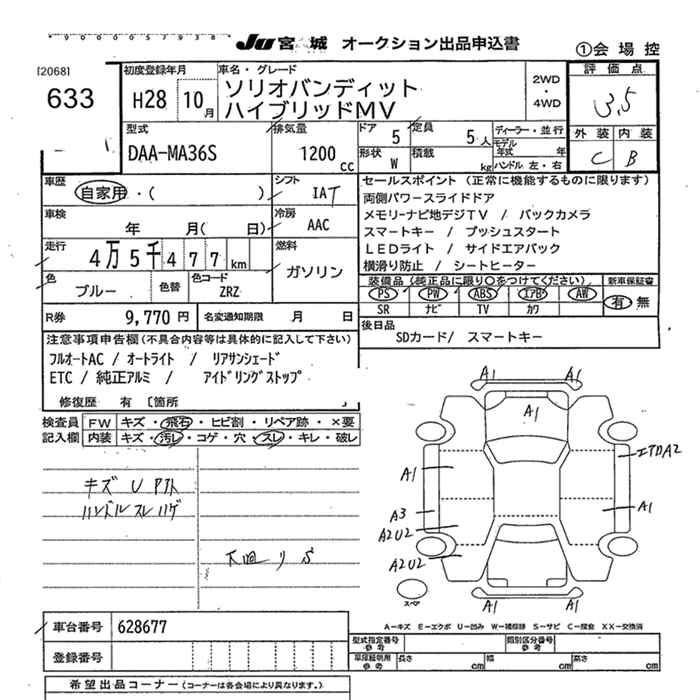 900057938
JU 宮城 オークション出品申込書 ①会場控
[2068]
633
初度登録年月 H28 10月
車名・グレード ソリオバンディット
ハイブリッドMV
2WD
・
4WD
評価点
3.5
外装 内装
C B
型式 DAA-MA36S
排気量 1200 cc
ドア 5 定員 5人
形状 W 積載 kg
ディーラー・並行
モデル年式 年
ハンドル 左・右
車歴 自家用・( )
シフト IAT
車検 年 月( 日)
冷房 AAC
走行 4万5千477km
燃料 ガソリン
色 ブルー 色替 色コード ZRZ
R券 9,770円 名変通知期限 月 日
セールスポイント(正常に機能するものに限ります)
両側パワースライドドア
メモリーナビ地デジTV / バックカメラ
スマートキー / プッシュスタート
LEDライト / サイドエアバック
横滑り防止 / シートヒーター
装備品(純正品に限り○をつけてください) 新車保証書
PS PW ABS エアB AW 有 無
SR ナビ TV カワ
後日品
SDカード/ スマートキー
注意事項申告欄(不具合内容等は具体的に記入して下さい)
フルオートAC / オートライト / リアサンシェード
ETC / 純正アルミ / アイドリングストップ
修復歴 有 〔箇所 〕
検査員記入欄
FW キズ・飛石・ヒビ割・リペア跡・×要
内装 キズ・汚レ・コゲ・穴・スレ・キレ・破レ
キズ U アト
ハンドルスレハゲ
下廻りサビ
A1
A1
A1
A1
エクボA2
A1
A3
A1
A2U2
A2U2
A1
A1
スペア
A−キズ E−エクボ U−凹み W−補修跡 S−サビ C−腐食 XX−交換済
車台番号 628677
登録番号
型式指定番号 参考 類別区分番号 参考
車庫証明用 参考 長さ cm 幅 cm 高さ cm
希望出品コーナー(コーナーは各会場により異なります。)